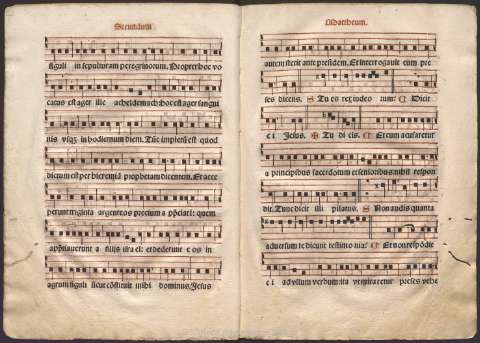 Secundum
figuli in sepulturam peregrinorum. Propter hoc vo
catus est ager ille acheldemach: hoc est ager sangui
nis usqz in hodiernum diem. Tūc impletū est quod
dictum est per hieremiā prophetam dicentem. Et acce
perunt triginta argenteos precium appreciati: quem
appreciauerunt a filijs israel: et dederunt eos in
agrum figuli sicut cōstituit mihi dominus. Jesus
Mattheum.
autem stetit ante presidem. Et interrogauit eum pre
ses dicens. Tu es rex iudeorum? C Dicit
ei Jesus. ✠ Tu dicis. C Et cum accusaretur
a principibus sacerdotum et senioribus: nihil respon
dit. Tunc dicit illi pilatus. S Non audis quanta
aduersum te dicunt testimonia? C Et non respōdit
ei ad vllum verbum: ita vt miraretur preses vehe